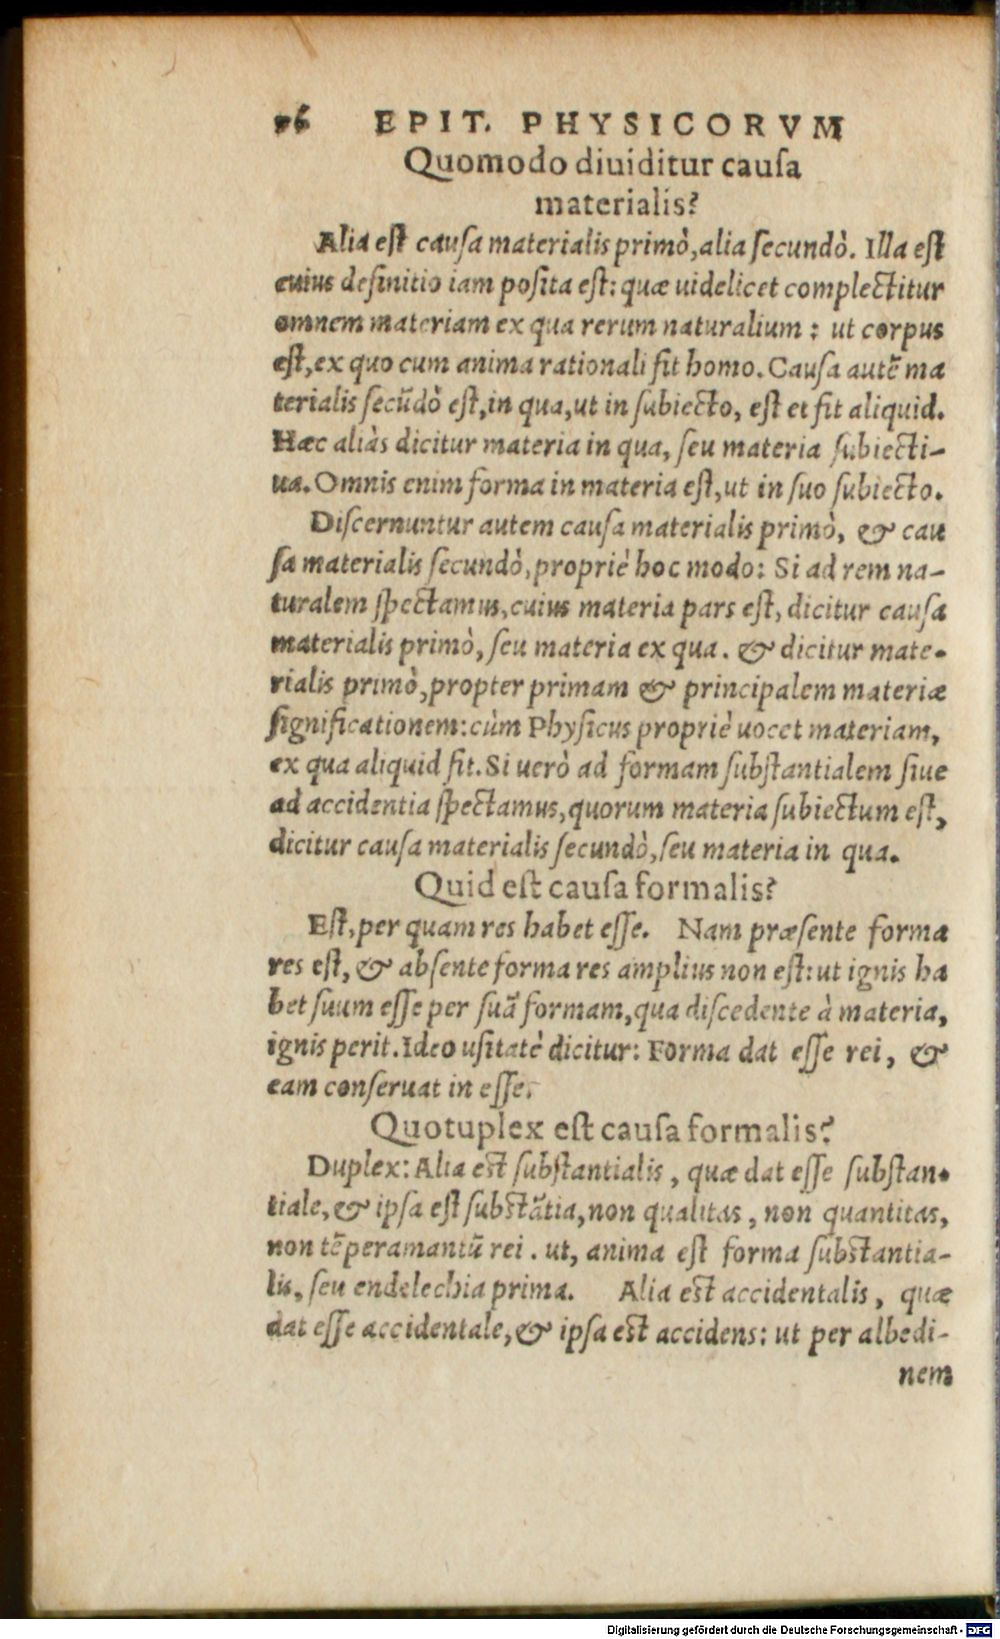 EPIT. PHYSICORVM
Quomodo diuiditur cauſa
materialis?
Alia eſt cauſa materialis primò, alia ſecundò. Illa eſt
cuius definitio iam poſita eſt: quæ uidelicet complectitur
omnem materiam ex qua rerum naturalium: ut corpus
eſt, ex quo cum anima rationali fit homo. Cauſa autẽ ma
terialis ſecũdò eſt, in qua, ut in ſubiecto, eſt et fit aliquid.
Hæc aliàs dicitur materia in qua, ſeu materia ſubiecti-
ua. Omnis enim forma in materia eſt, ut in ſuo ſubiecto.
Diſcernuntur autem cauſa materialis primò, & cau
ſa materialis ſecundò, propriè hoc modo: Si ad rem na-
turalem ſpectamus, cuius materia pars eſt, dicitur cauſa
materialis primò, ſeu materia ex qua. & dicitur mate-
rialis primò, propter primam & principalem materiæ
ſignificationem: cùm Phyſicus propriè uocet materiam,
ex qua aliquid fit. Si uerò ad formam ſubſtantialem ſiue
ad accidentia ſpectamus, quorum materia ſubiectum eſt,
dicitur cauſa materialis ſecundò, ſeu materia in qua.
Quid eſt cauſa formalis?
Eſt, per quam res habet eſſe. Nam præſente forma
res eſt, & abſente forma res amplius non eſt: ut ignis ha
bet ſuum eſſe per ſuã formam, qua diſcedente à materia,
ignis perit. Ideo uſitatè dicitur: Forma dat eſſe rei, &
eam conſeruat in eſſe.
Quotuplex eſt cauſa formalis?
Duplex: Alia eſt ſubſtantialis, quæ dat eſſe ſubſtan-
tiale, & ipſa eſt ſubſtãtia, non qualitas, non quantitas,
non tẽperamantũ rei. ut, anima eſt forma ſubſtantia-
lis, ſeu endelechia prima. Alia eſt accidentalis, quæ
dat eſſe accidentale, & ipſa eſt accidens: ut per albedi-
nem
Digitalisierung gefördert durch die Deutsche Forschungsgemeinschaft - DFG